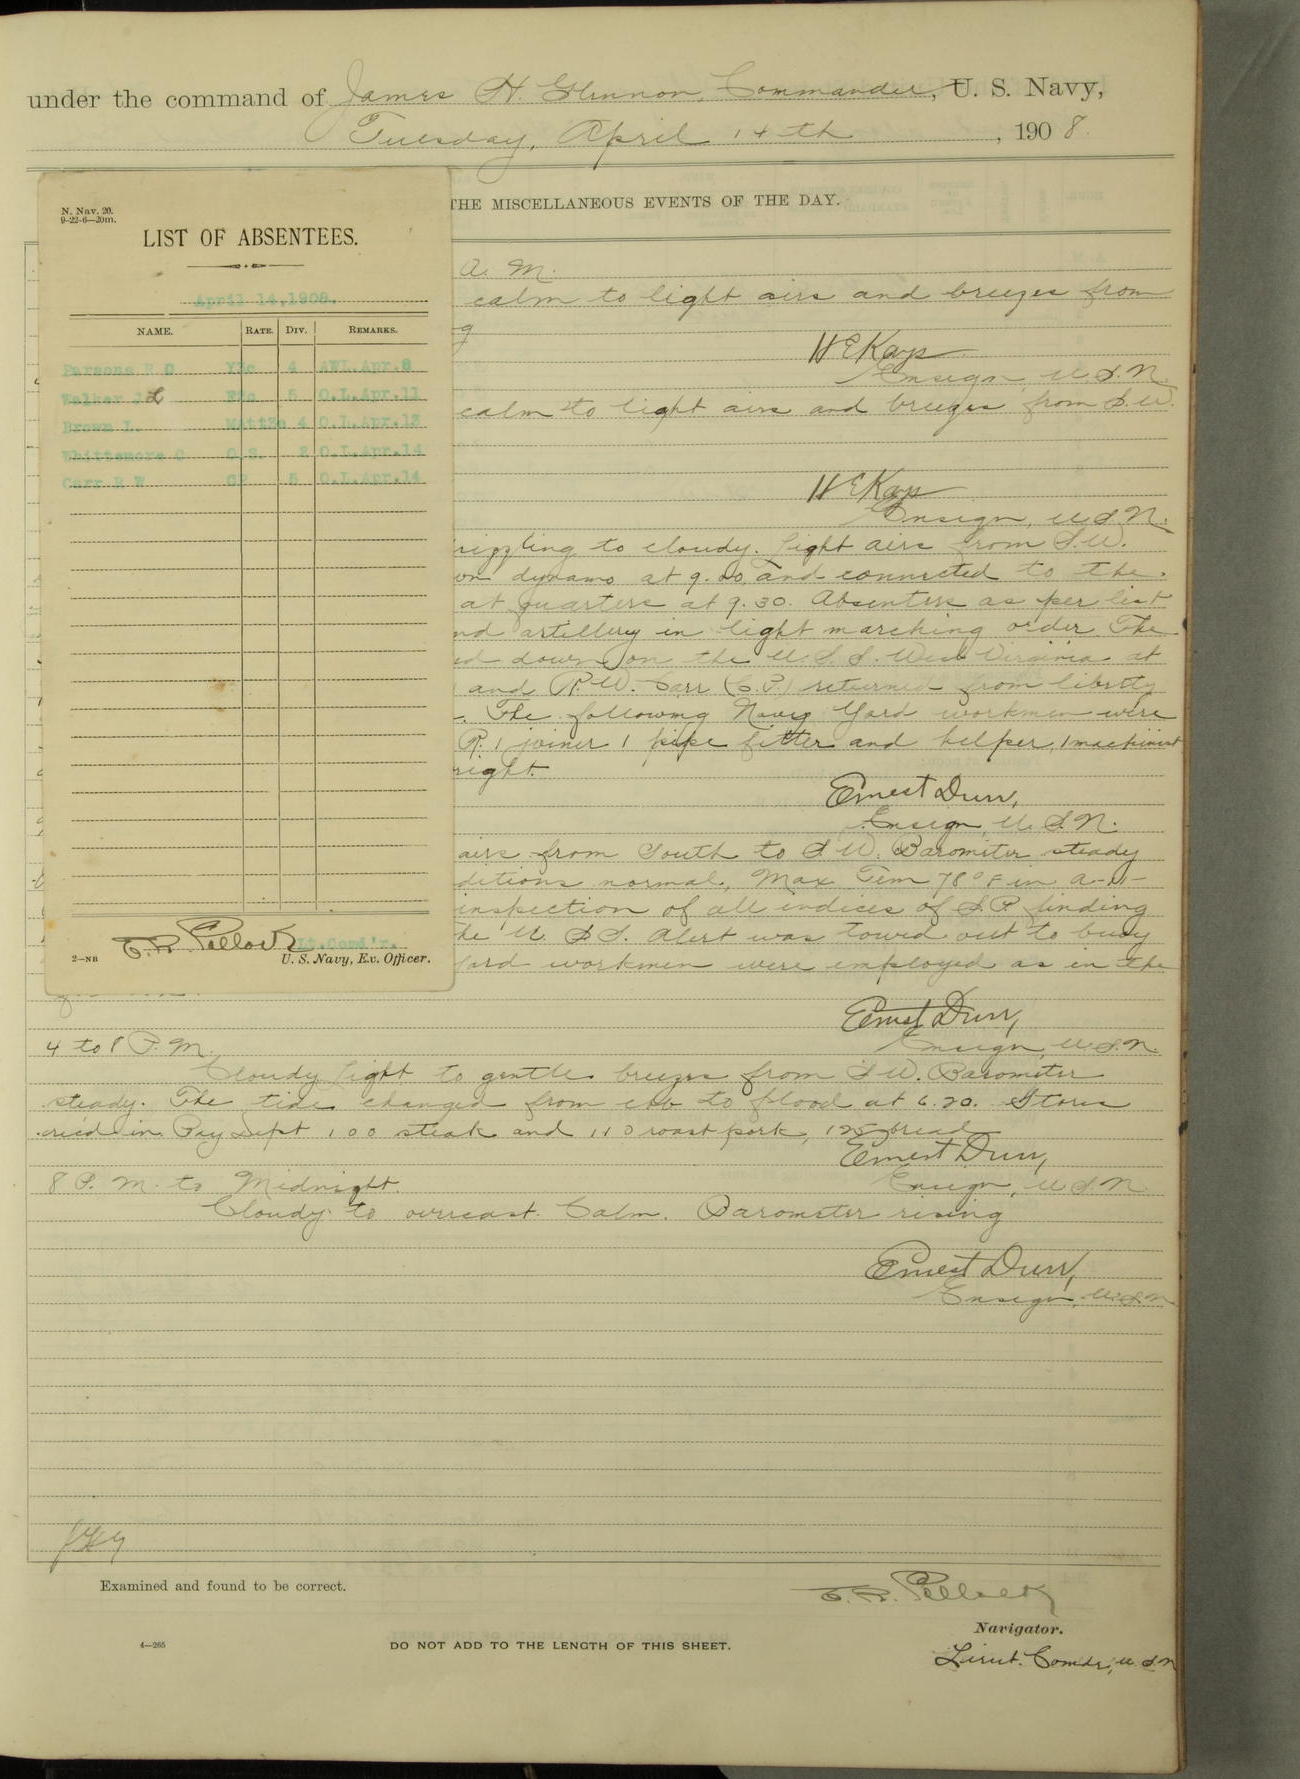 under the command of James H. Glennon, Commander, U. S. Navy,
Tuesday, April 14th, 1908.
THE MISCELLANEOUS EVENTS OF THE DAY.
N. Nav. 20.
9-22-6—20m.
LIST OF ABSENTEES.
April 14,1908.
NAME. RATE. DIV. REMARKS.
Parsons 4 AWL.Apr.8
Walker J L 5 O.L.Apr.11
Brown L. 4 O.L.Apr.13
Whittemore C O.S. 2 O.L.Apr.14
Carr R W CP 5 O.L.Apr.14
E. R. Pollock Lt.Comd'r.
2—NB U. S. Navy, Ex. Officer.
A. M.
calm to light airs and breezes from
g
H E Kays
Ensign, U.S.N.
calm to light airs and breezes from S.W.
H E Kays
Ensign, U.S.N.
rizzling to cloudy. Light airs from S.W.
on dynamo at 9.00, and connected to the
at quarters at 9.30. Absentees as per list
nd artillery in light marching order. The
ed down on the U.S.S. West Virginia at
and R.W. Carr (C.P.) returned from liberty
The following Navy Yard workmen were
R. 1 joiner 1 pipe fitter and helper, 1 machinist
right.
Ernest Durr,
Ensign, U.S.N.
airs from South to S.W. Barometer steady
ditions normal. Max Tem 78° F in A-11-
inspection of all indices of S.P. finding
he U.S.S. Alert was towed out to buoy
Yard workmen were employed as in the
Ernest Durr,
Ensign, U.S.N.
4 to 8 P.M.
Cloudy. Light to gentle breezes from S.W. Barometer
steady. The tide changed from ebb to flood at 6.20. Stores
recd in Pay Dept 100 steak and 110 roast pork, 125 bread
Ernest Durr,
Ensign, U.S.N.
8 P.M. to Midnight.
Cloudy to overcast. Calm. Barometer rising
Ernest Durr,
Ensign, U.S.N.
Examined and found to be correct.
E. R. Pollock
Navigator.
4—265 DO NOT ADD TO THE LENGTH OF THIS SHEET.
Lieut. Comdr, U.S.N.